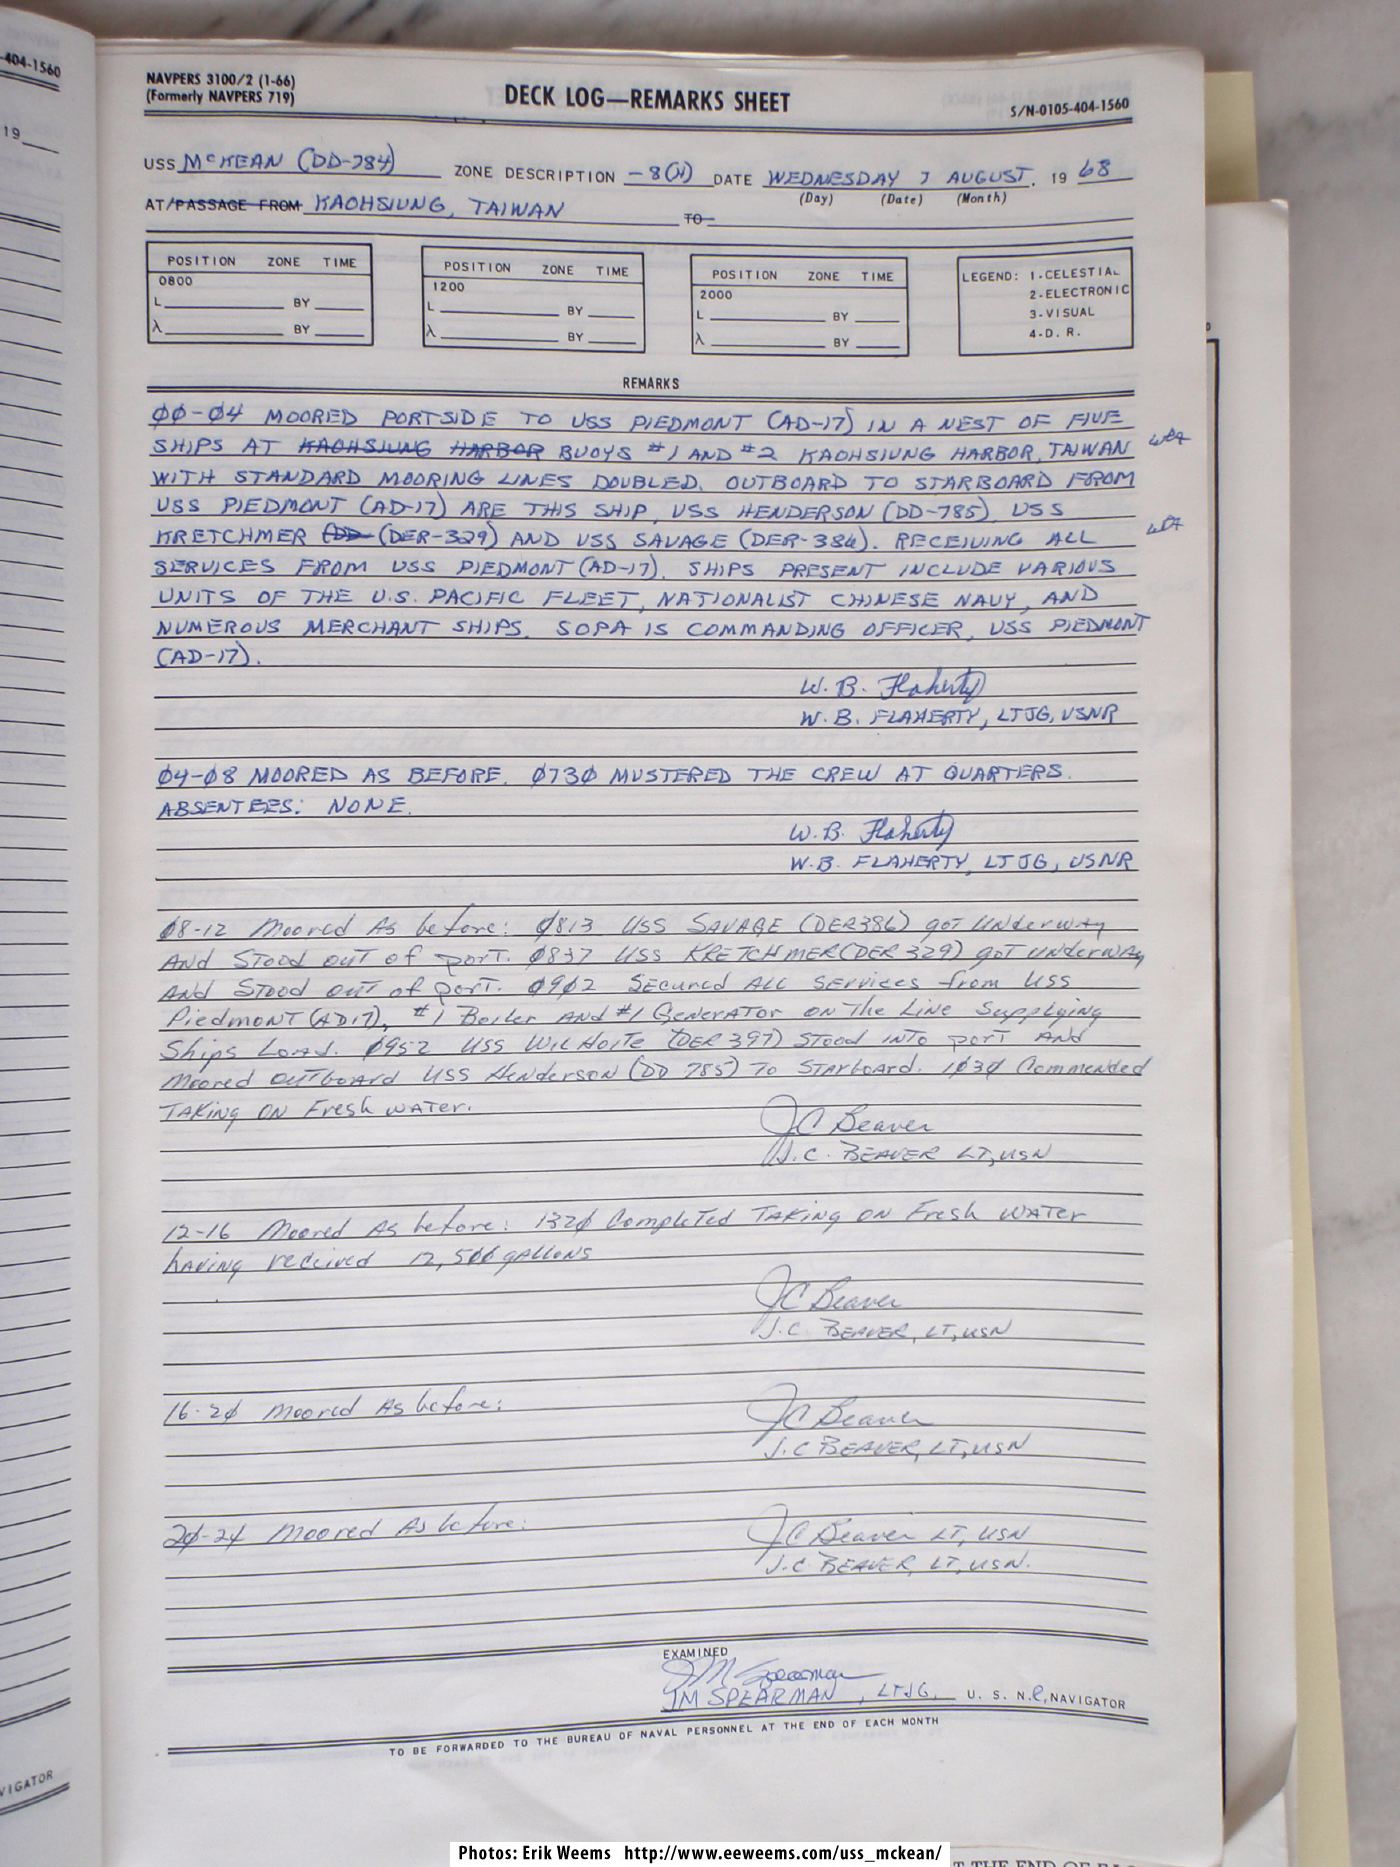 -404-1560
19
NAVPERS 3100/2 (1-66)
(Formerly NAVPERS 719)
DECK LOG—REMARKS SHEET
S/N-0105-404-1560
USS McKEAN (DD-784) ZONE DESCRIPTION -8(H) DATE WEDNESDAY 7 AUGUST, 19 68
(Day) (Date) (Month)
AT/PASSAGE FROM KAOHSIUNG, TAIWAN TO
POSITION ZONE TIME
0800
L BY
λ BY
POSITION ZONE TIME
1200
L BY
λ BY
POSITION ZONE TIME
2000
L BY
λ BY
LEGEND: 1-CELESTIAL
2-ELECTRONIC
3-VISUAL
4-D. R.
REMARKS
00-04 MOORED PORTSIDE TO USS PIEDMONT (AD-17) IN A NEST OF FIVE
SHIPS AT KAOHSIUNG HARBOR BUOYS #1 AND #2 KAOHSIUNG HARBOR, TAIWAN
WITH STANDARD MOORING LINES DOUBLED. OUTBOARD TO STARBOARD FROM
USS PIEDMONT (AD-17) ARE THIS SHIP, USS HENDERSON (DD-785), USS
KRETCHMER (DD (DER-329) AND USS SAVAGE (DER-386). RECEIVING ALL
SERVICES FROM USS PIEDMONT (AD-17). SHIPS PRESENT INCLUDE VARIOUS
UNITS OF THE U.S. PACIFIC FLEET, NATIONALIST CHINESE NAVY, AND
NUMEROUS MERCHANT SHIPS. SOPA IS COMMANDING OFFICER, USS PIEDMONT
(AD-17).
W. B. Flaherty
W. B. FLAHERTY, LTJG, USNR
04-08 MOORED AS BEFORE. 0730 MUSTERED THE CREW AT QUARTERS.
ABSENTEES: NONE.
W. B. Flaherty
W. B. FLAHERTY, LTJG, USNR
08-12 Moored As before: 0813 USS SAVAGE (DER386) got underway
AND STOOD OUT of port. 0837 USS KRETCHMER (DER 329) got underway
AND STOOD OUT of port. 0902 Secured ALL Services from USS
Piedmont (AD17), #1 Boiler AND #1 GENERATOR ON The Line Supplying
Ships Load. 0952 USS Wilhoite (DER 397) STOOD INTO port AND
Moored outboard USS Henderson (DD 785) To Starboard. 1030 Commended
TAKING ON Fresh WATER.
JC Beaver
J. C. BEAVER LT, USN
12-16 Moored As before: 1320 Completed TAKING ON Fresh WATER
having recieved 12,500 gallons
JC Beaver
J. C. BEAVER, LT, USN
16-20 Moored As before:
JC Beaver
J. C BEAVER, LT, USN
20-24 Moored As before:
JC Beaver LT, USN
J. C. BEAVER, LT, USN.
EXAMINED
JM Spearman
JM SPEARMAN, LTJG, U. S. N.R, NAVIGATOR
TO BE FORWARDED TO THE BUREAU OF NAVAL PERSONNEL AT THE END OF EACH MONTH
VIGATOR
Photos: Erik Weems http://www.eeweems.com/uss_mckean/